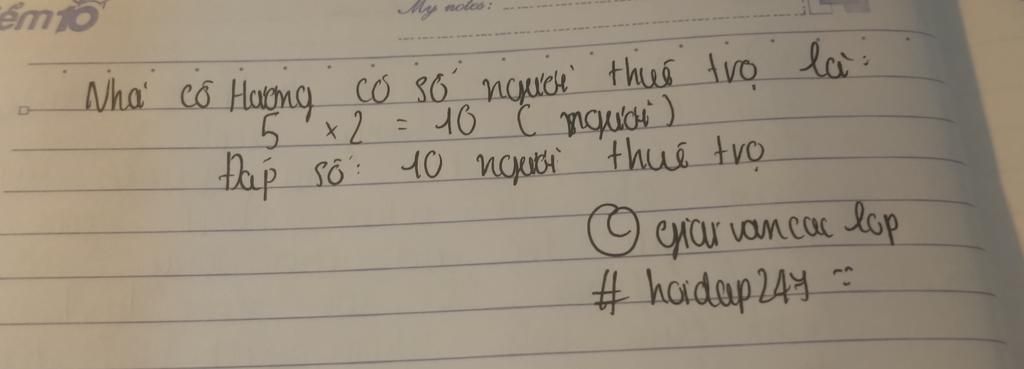 ểm 10
My notes:
Nhà cô Hương có số người thuê trọ là:
5 × 2 = 10 (người)
Đáp số: 10 người thuê trọ
© giaivancac lop
# hoidap247 :